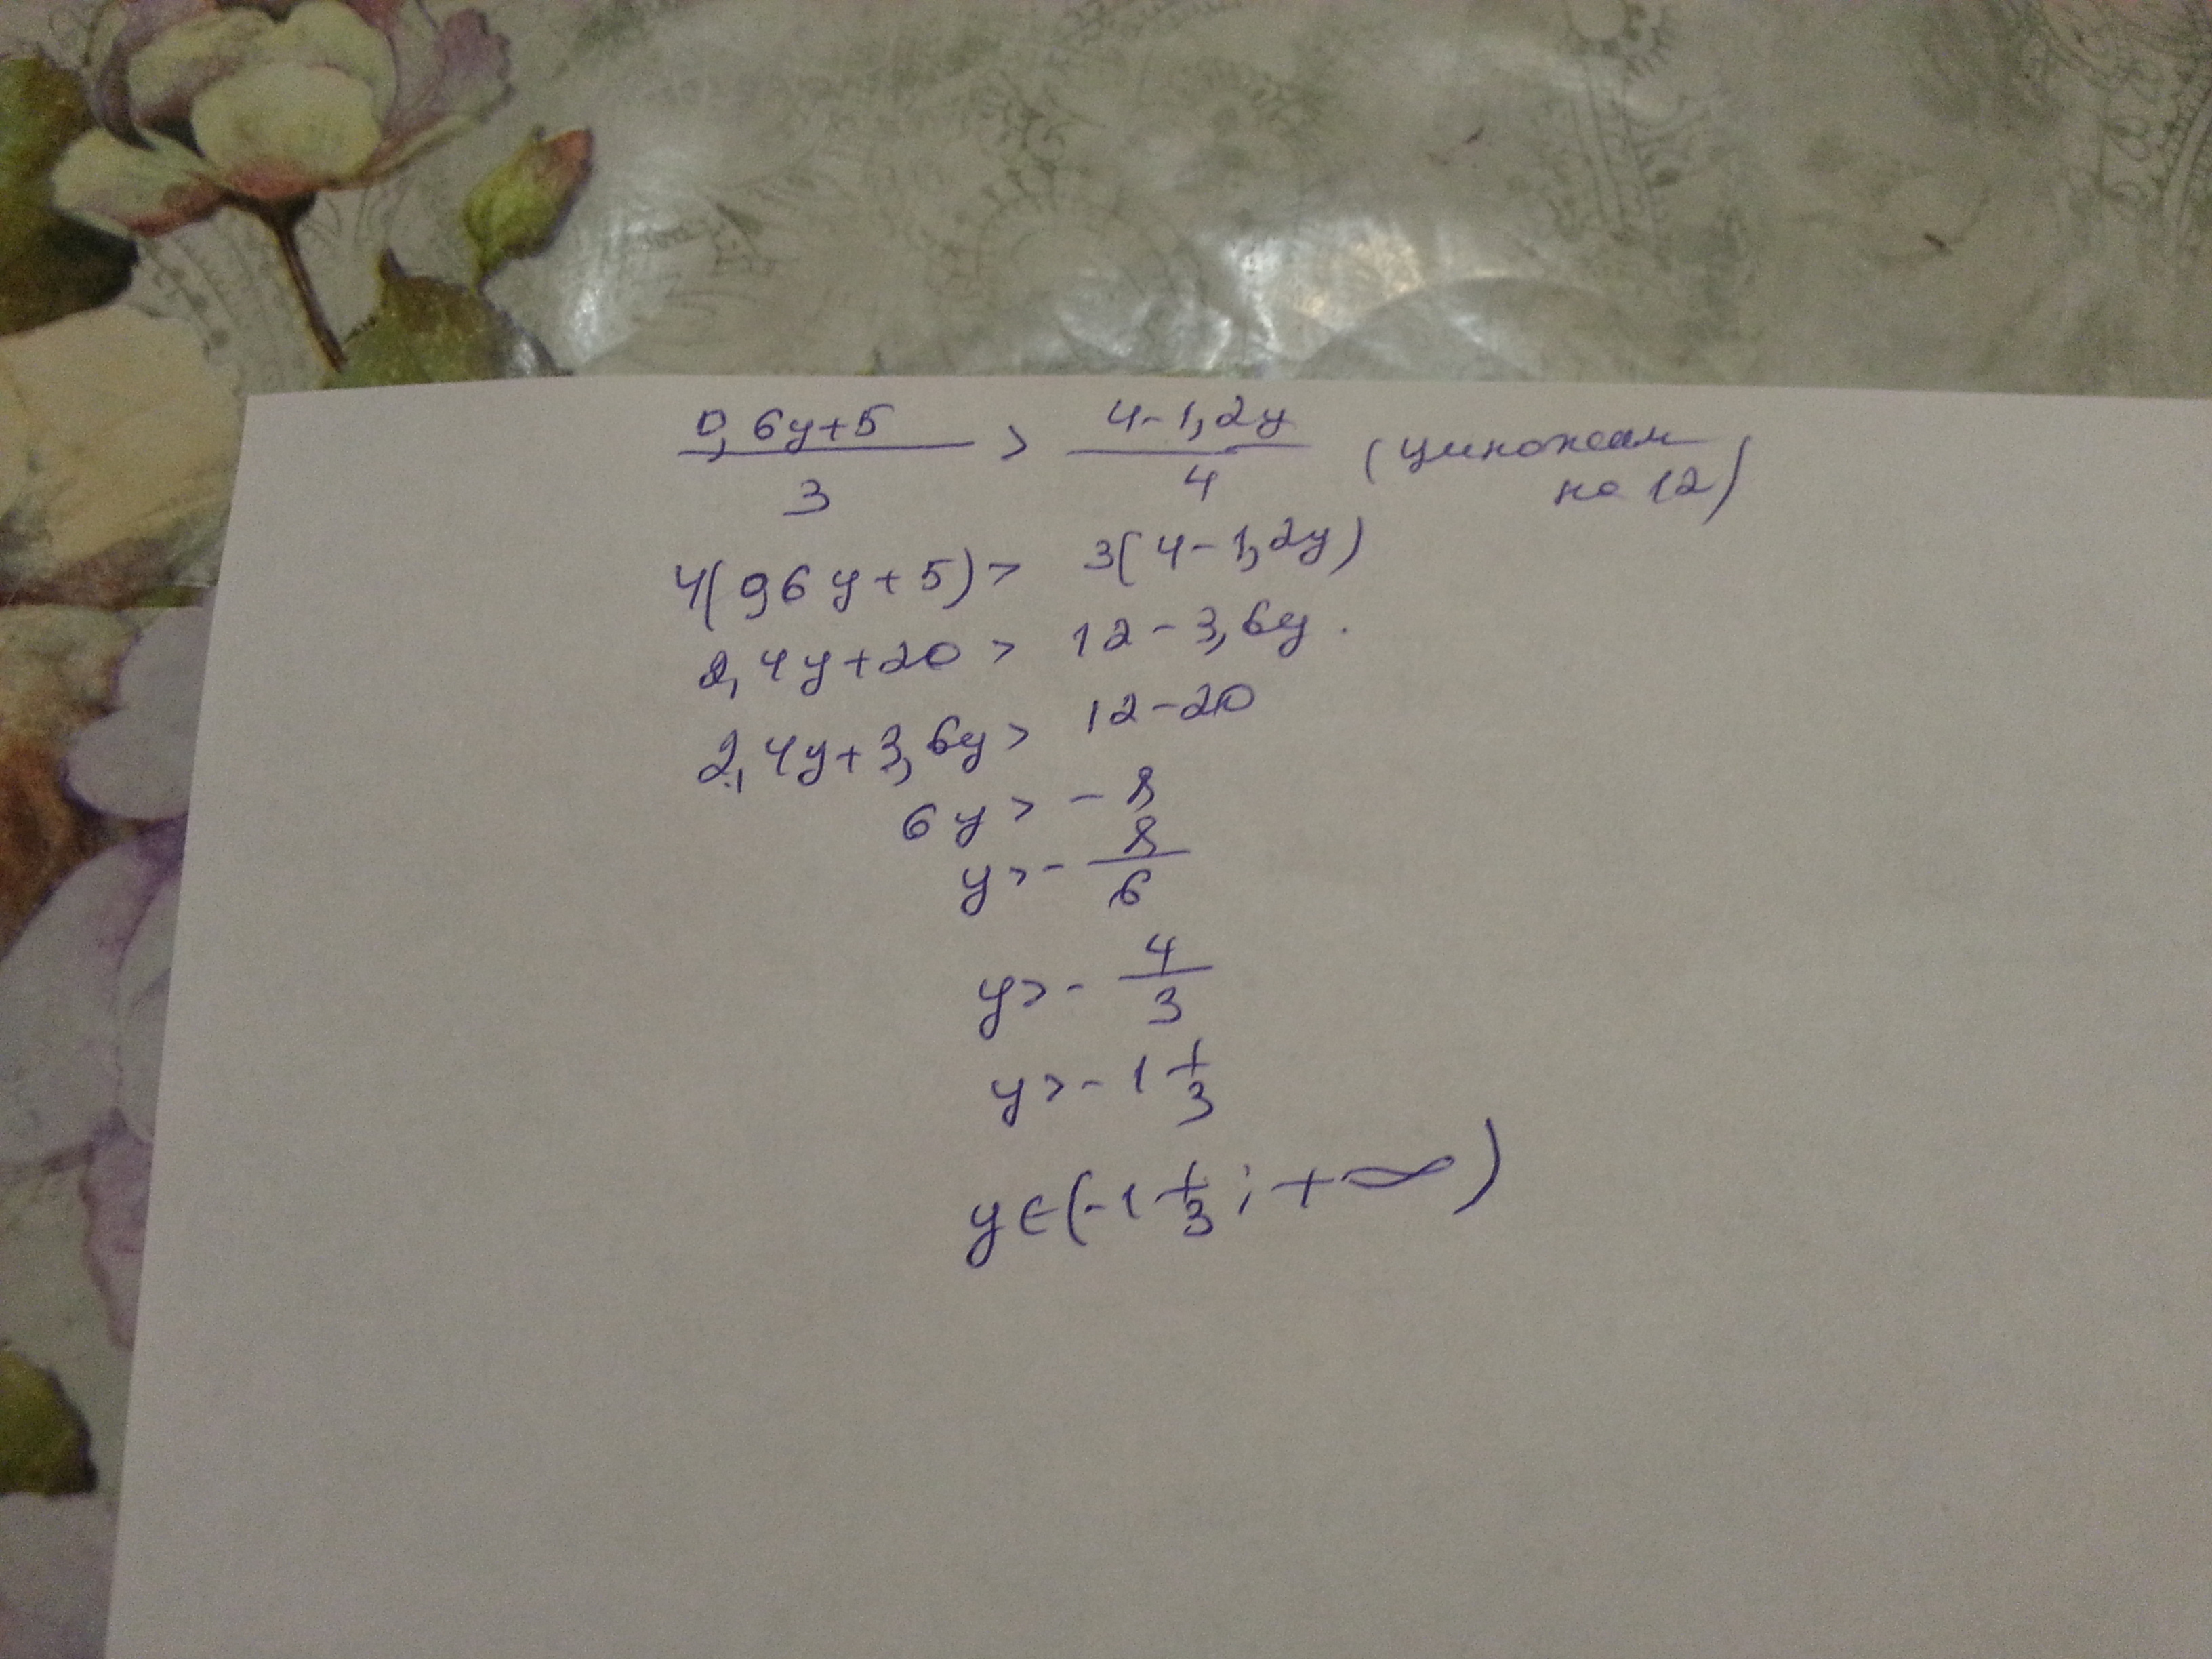 0,6y+5 / 3 > 4-1,2y / 4 (умножаем на 12)
4(0,6y+5)> 3(4-1,2y)
2,4y+20> 12-3,6y.
2,4y+3,6y> 12-20
6y> -8
y>- 8/6
y>- 4/3
y>-1 1/3
y∈(-1 1/3; +∞)